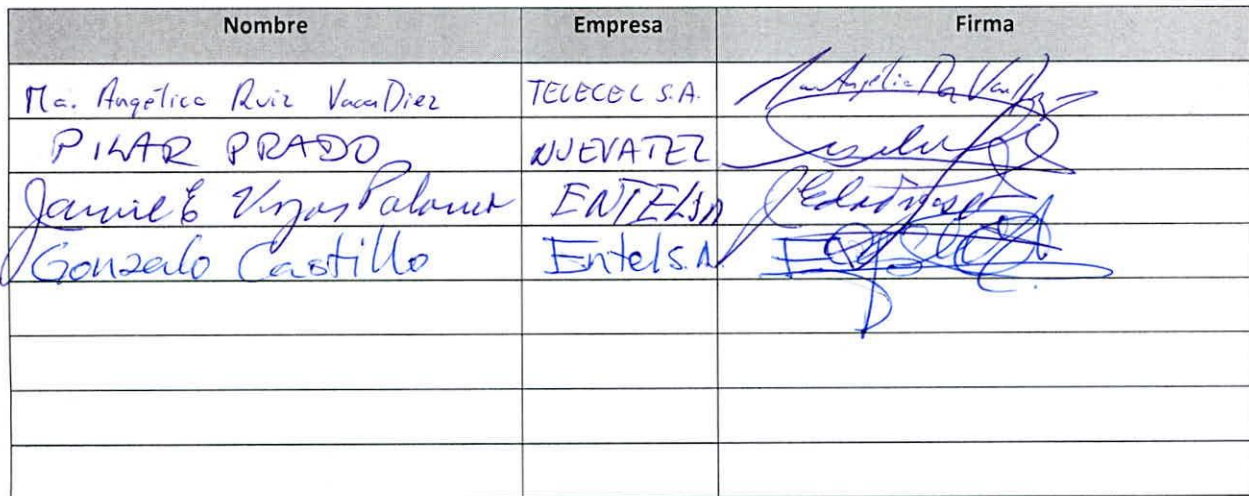 Nombre Empresa Firma
Ma. Angélica Ruiz Vaca Diez TELECEL S.A.
PILAR PRADO NUEVATEL
E Vargas ENTEL SA
Gonzalo Castillo Entel S.A